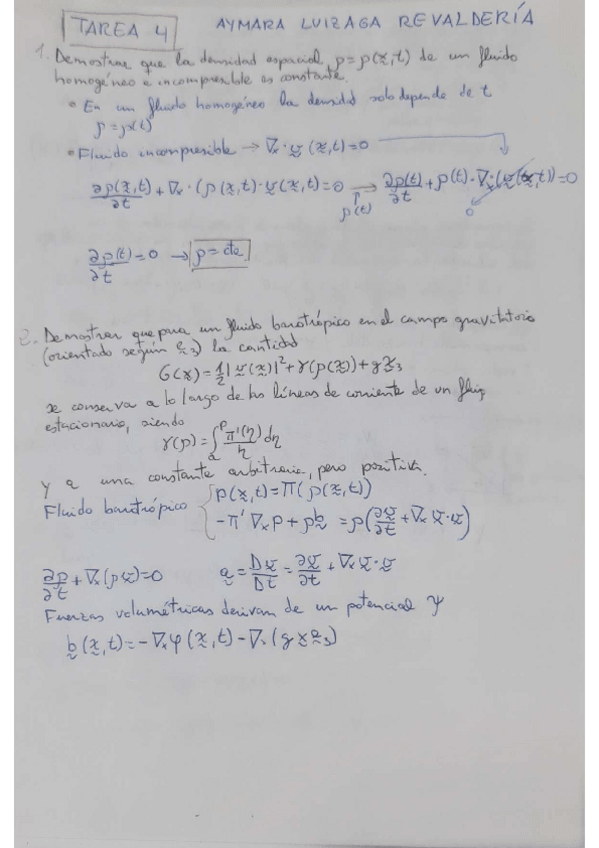 TAREA 4 AYMARA LUIZAGA REVALDERÍA
1. Demostrar que la densidad espacial ρ=ρ(x,t) de un fluido
homogéneo e incompresible es constante.
• En un fluido homogéneo la densidad solo depende de t
ρ=ρ(t)
• Fluido incompresible → ∇x·v(x,t)=0
∂ρ(x,t)/∂t + ∇x·(ρ(x,t)·v(x,t)=0 → ρ(t) ∂ρ(t)/∂t + ρ(t)·∇x·(v(x,t))=0
0
∂ρ(t)/∂t=0 → ρ=cte
2. Demostrar que para un fluido barotrópico en el campo gravitatorio
(orientado según e3) la cantidad
G(x)=1/2|v(x)|²+γ(ρ(x))+gx3
se conserva a lo largo de las líneas de corriente de un flujo
estacionario, siendo
γ(ρ)=∫aρ π'(η)/η dη
y a una constante arbitraria, pero positiva.
Fluido barotrópico { p(x,t)=π(ρ(x,t))
-π' ∇xρ+ρb =ρ(∂v/∂t+∇x v·v)
∂ρ/∂t+∇x(ρv)=0 a=Dv/Dt=∂v/∂t+∇x v·v
Fuerzas volumétricas derivan de un potencial ψ
b(x,t)=-∇xφ(x,t)-∇x(g x e3)